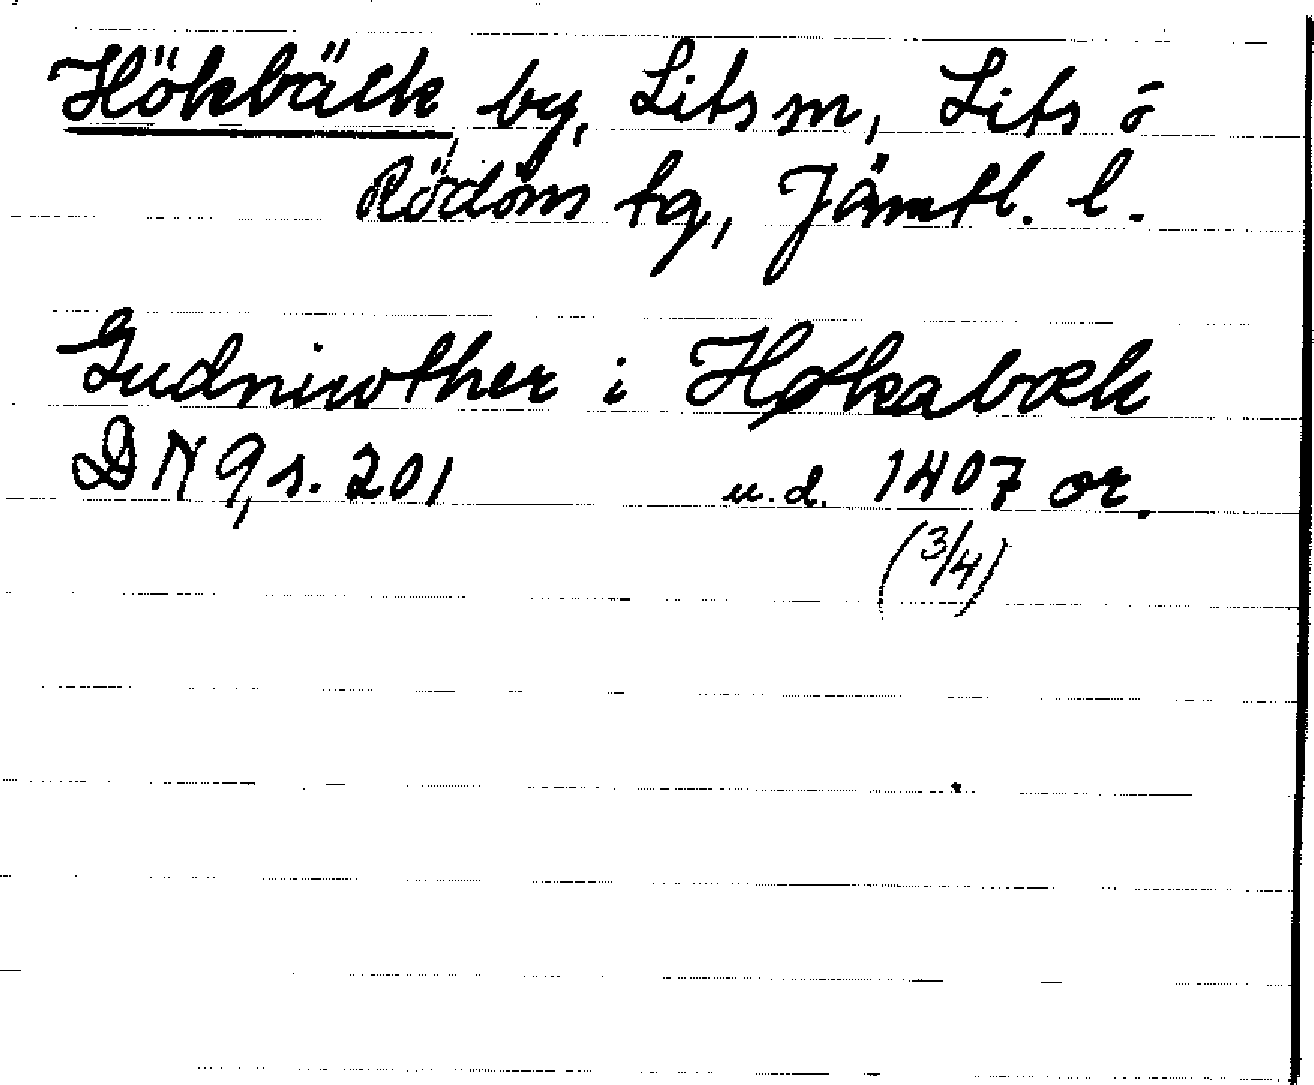 Hökbäck, by, Lits sn, Lits o
Rödöns tg, Jämtl. l.
Gudniwther i Høkabæk
DN 9, s. 201 u.d. 1407 or.
(3/4)